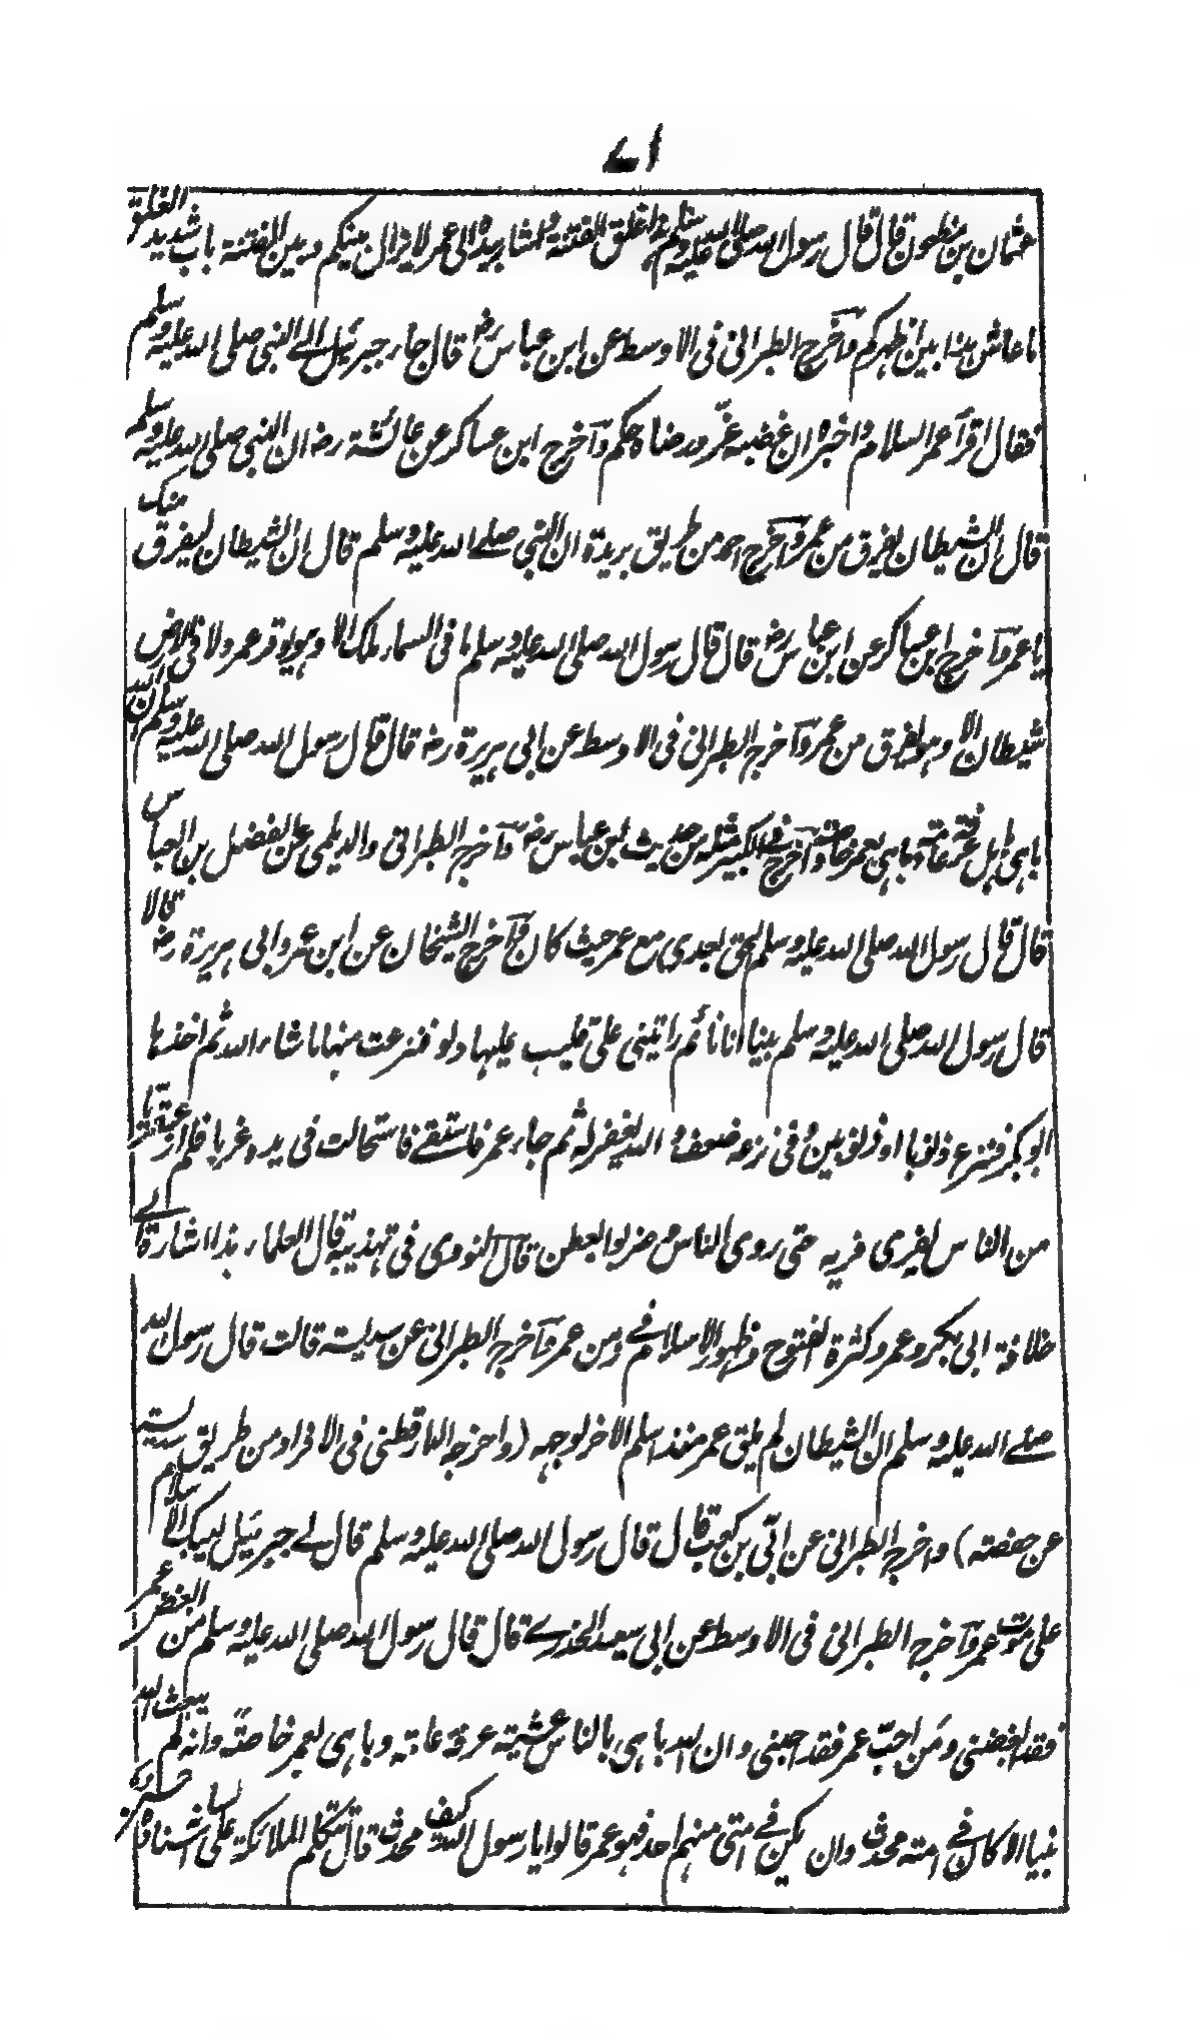 ۷۱
عثمان بن مظعون قال قال رسول الله صلى الله عليه وسلم هذا غلق الفتنة واشار بيده الى عمر لا يزال بينكم وبين الفتنة باب شديد الغلق
ما عاش هذا بين اظهركم وآخرج الطبرانى فى الاوسط عن ابن عباس رض قال جاء جبرئيل الے النبي صلى الله عليه وسلم
فقال اقرأ عمر السلام واخبره ان غضبه عزّ ورضاه حكم وآخرج ابن عساكر عن عائشة رض ان النبي صلى الله عليه وسلم
قال ان الشيطان يفرق من عمر وآخرج احمد من طريق بريدة ان النبي صلے الله عليه وسلم قال ان الشيطان ليفرق منك
يا عمر وآخرج ابن عساكر عن ابن عباس رض قال قال رسول الله صلى الله عليه وسلم ما فى السماء ملك الا وهو يوقر عمر ولا فى الارض
شيطان الا وهو يفرق من عمر وآخرج الطبرانى فى الاوسط عن ابى هريرة رض قال قال رسول الله صلى الله عليه وسلم ان الله
باهى باهل عرفة عامة وباهى بعمر خاصة وآخرج فے الكبير مثله من حديث ابن عباس رض وآخرج الطبرانى والديلمى عن الفضل بن العباس
قال قال رسول الله صلى الله عليه وسلم الحق بعدى مع عمر حيث كان وآخرج الشيخان عن ابن عمر وابى هريرة رض قالا
قال رسول الله صلى الله عليه وسلم بينا انا نائم رايتنى على قليب عليها دلو فنزعت منها ما شاء الله ثم اخذها
ابو بكر فنزع ذنوبا او ذنوبين وفى نزعه ضعف والله يغفر له ثم جاء عمر فاستقے فاستحالت فى يده غربا فلم ار عبقريا
من الناس يفرى فريه حتى روى الناس وضربوا العطن قال النووى فى تهذيبه قال العلماء هذا اشارة الے
خلافة ابى بكر وعمر وكثرة الفتوح وظهور الاسلام فے زمن عمر وآخرج الطبرانى عن سديسة قالت قال رسول الله
صلے الله عليه وسلم ان الشيطان لم يلق عمر منذ اسلم الا خر لوجهه (واخرجه الدارقطنى فى الافراد من طريق سديسة
عن حفصة) واخرج الطبرانى عن ابىّ بن كعب قال قال رسول الله صلى الله عليه وسلم قال لے جبرئيل ليبك الاسلام
على موت عمر وآخرج الطبرانى فى الاوسط عن ابى سعيد الخدرے قال قال رسول الله صلى الله عليه وسلم من ابغض عمر
فقد ابغضنى ومن احبّ عمر فقد احبنى وان الله باهى بالناس عشية عرفة عامة وباهى بعمر خاصة وانه لم يبعث الله
نبيا الا كان فے امته محدث وان يكن فے امتى منهم احد فهو عمر قالوا يا رسول الله كيف محدث قال تتكلم الملائكة على لسانه اسناده حسن